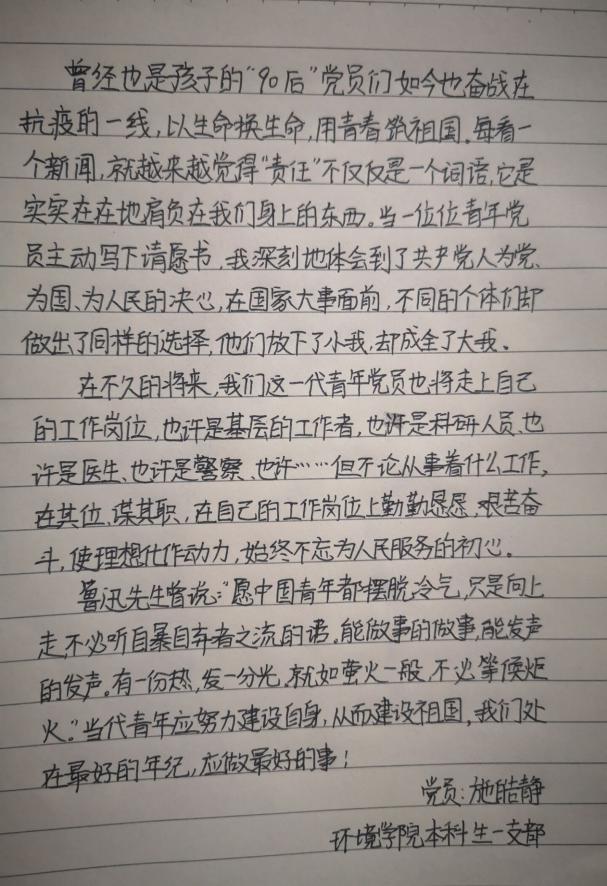 曾经也是孩子的“90后”党员们如今也奋战在
抗疫的一线，以生命换生命，用青春报祖国。每看一
个新闻，就越来越觉得“责任”不仅仅是一个词语，它是
实实在在地肩负在我们身上的东西。当一位位青年党
员主动写下请愿书，我深刻地体会到了共产党人为党、
为国、为人民的决心，在国家大事面前，不同的个体们却
做出了同样的选择，他们放下了小我，却成全了大我。
在不久的将来，我们这一代青年党员也将走上自己
的工作岗位，也许是基层的工作者，也许是科研人员、也
许是医生、也许是警察、也许……但不论从事着什么工作，
在其位、谋其职，在自己的工作岗位上勤勤恳恳、艰苦奋
斗，使理想化作动力，始终不忘为人民服务的初心。
鲁迅先生曾说：“愿中国青年都摆脱冷气，只是向上
走，不必听自暴自弃者之流的话。能做事的做事，能发声
的发声。有一份热，发一分光，就如萤火一般，不必等候炬
火。”当代青年应努力建设自身，从而建设祖国，我们处
在最好的年纪，应做最好的事！
党员：施皓静
环境学院本科生一支部